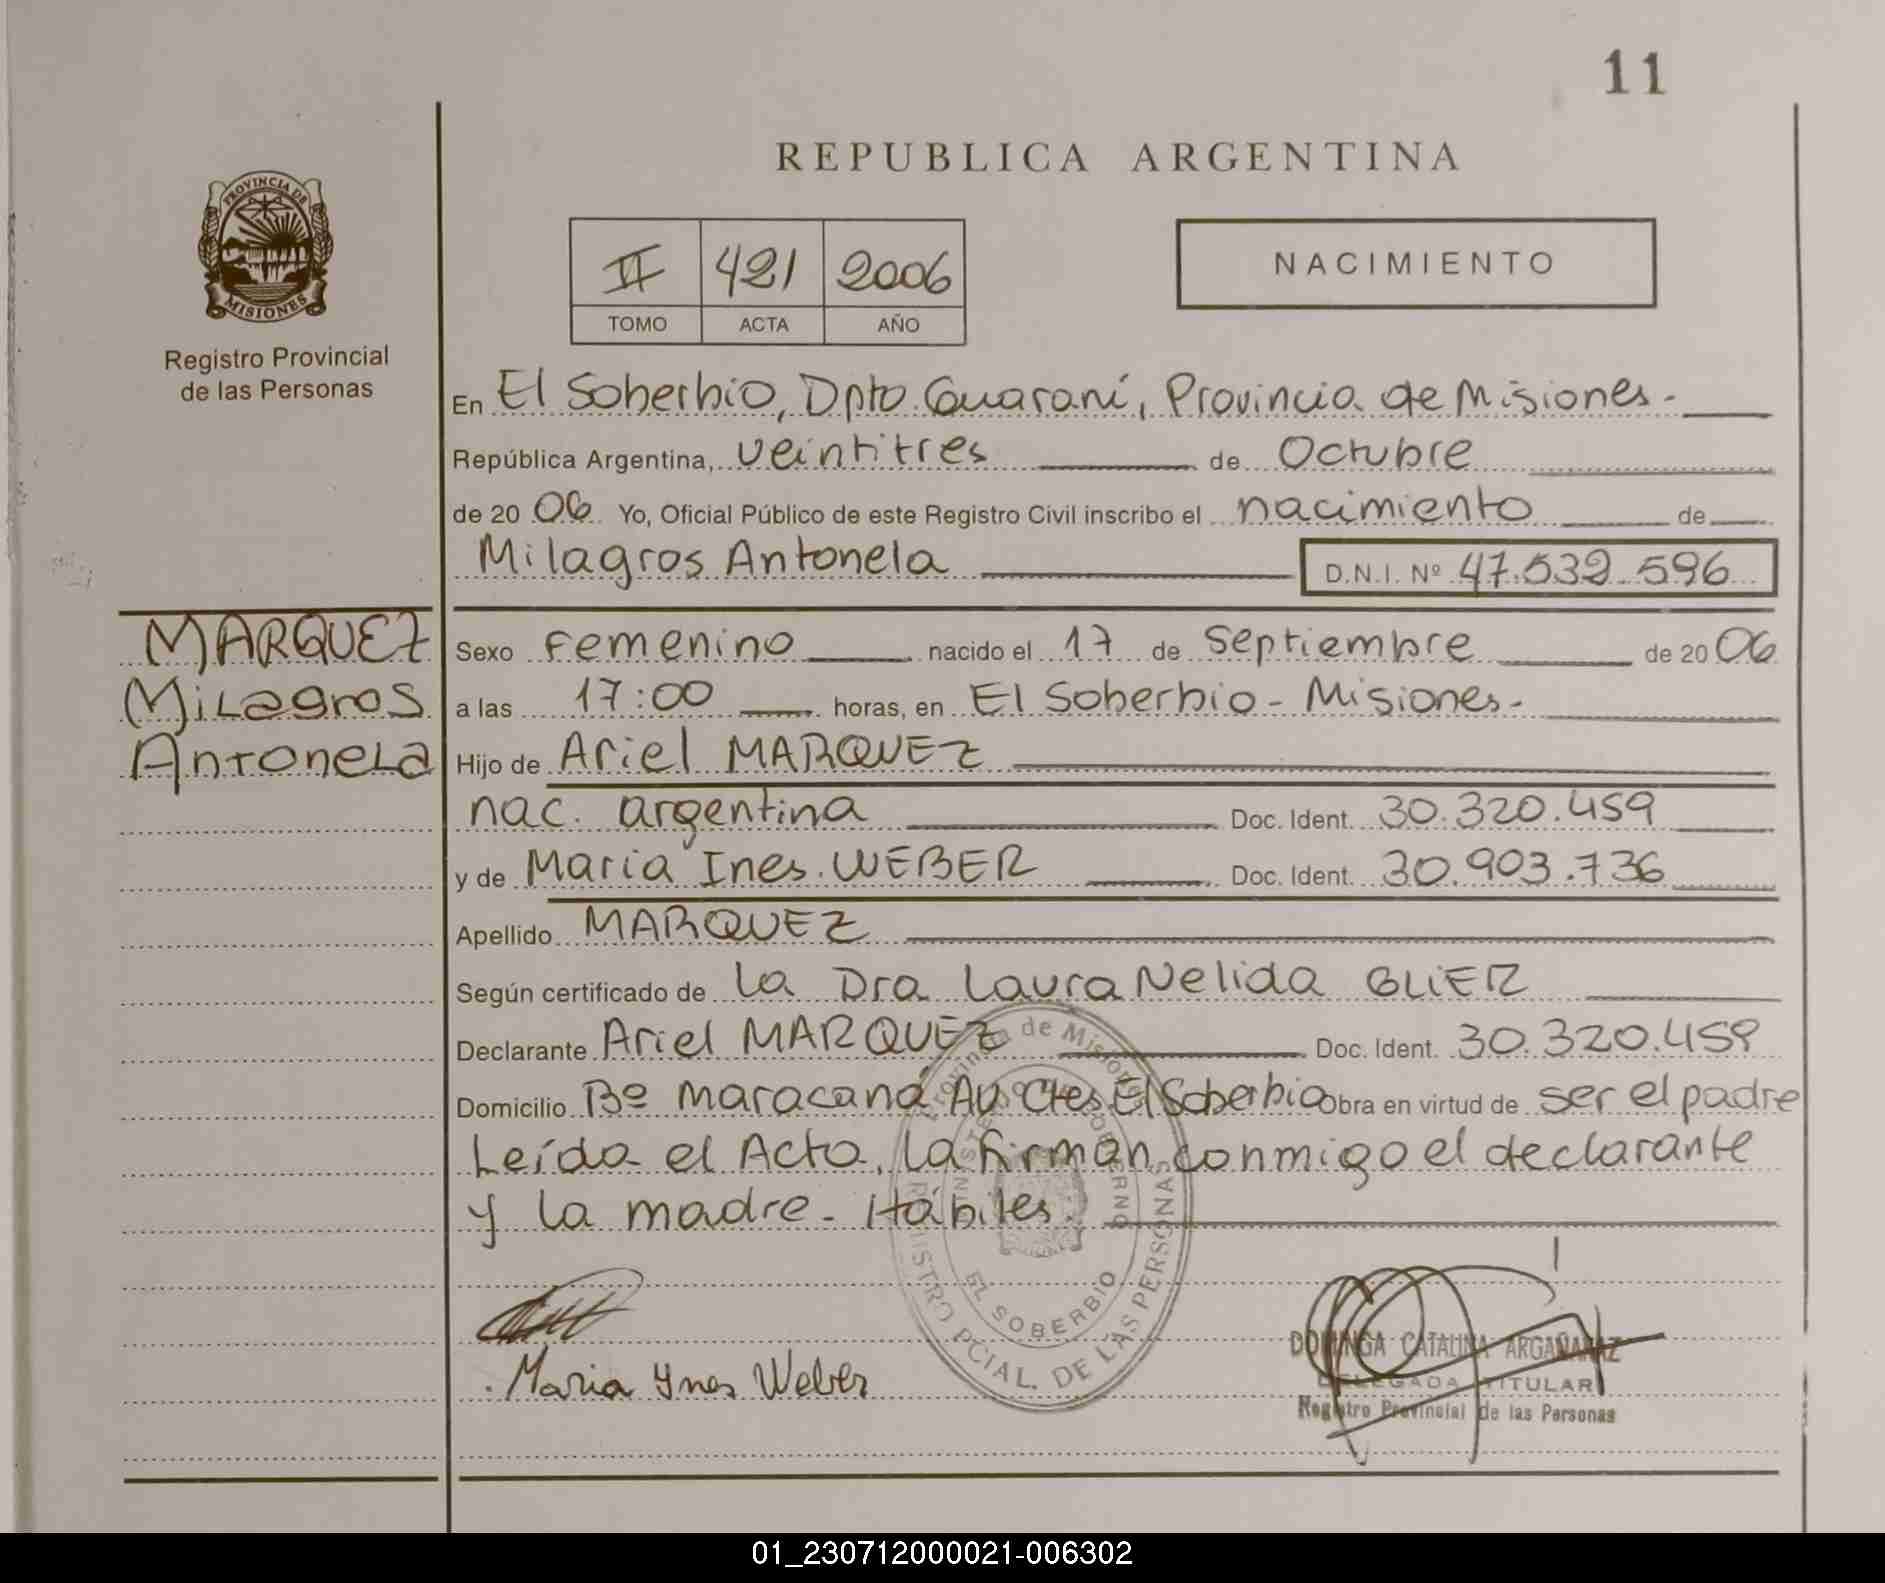 11
REPUBLICA ARGENTINA
PROVINCIA DE
MISIONES
Registro Provincial
de las Personas
II 421 2006
TOMO ACTA AÑO
NACIMIENTO
En El Soberbio, Dpto Guaraní, Provincia de Misiones.-
República Argentina, veintitres de Octubre
de 20 06 Yo, Oficial Público de este Registro Civil inscribo el nacimiento de
Milagros Antonela D.N.I. Nº 47.532.596
MARQUEZ
Milagros
Antonela
Sexo Femenino nacido el 17 de Septiembre de 20 06
a las 17:00 horas, en El Soberbio - Misiones.-
Hijo de Ariel MARQUEZ
nac. argentina Doc. Ident. 30.320.459
y de Maria Ines WEBER Doc. Ident. 30.903.736
Apellido MARQUEZ
Según certificado de la Dra Laura Nelida GLIER
Declarante Ariel MARQUEZ Doc. Ident. 30.320.459
Domicilio Bº Maracaná Av Ctes El Soberbio Obra en virtud de ser el padre
Leída el Acta, la firman conmigo el declarante
y la madre - Hábiles.
Provincia de Misiones
MINISTERIO DE GOBIERNO
REGISTRO PCIAL. DE LAS PERSONAS
EL SOBERBIO
Maria Ynes Weber
DOMINGA CATALINA ARGAÑARAZ
DELEGADA TITULAR
Registro Provincial de las Personas
01_230712000021-006302